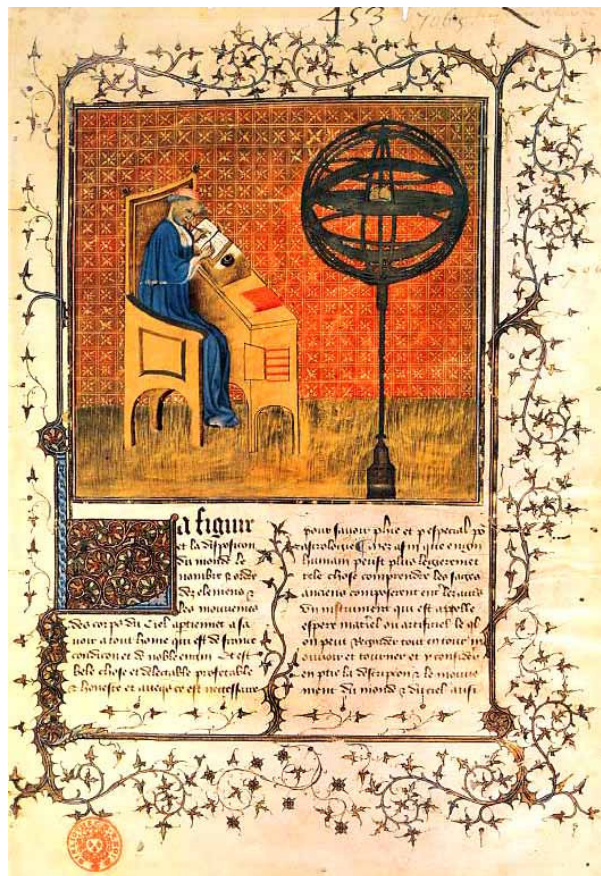 453
7065
La figure
et la disposicion
du monde le
nombre & ordre
des elemens &
les mouvemens
des corps du ciel aptiennent a sa
voir a tout home qui est de france
condicion et de noble engin Et est
bele chose et delectable profetable
& honeste et avecq ce est necessaire
pour savoir plus et p especial po
astrologie Carez afin que engin
humain peust plus legierement
tele chose comprendre les sages
anciens composerent entre leurs
un instrument qui est appelle
espere materiel ou artificiel le ql
on peut regarder tout entour m
ouvoir et tourner et p consider
en ptie la descripcion & le mouve
ment du monde & du ciel aussi